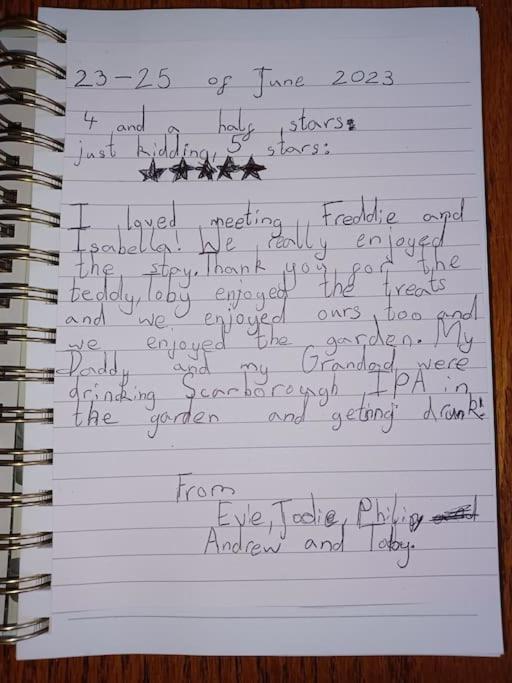 23-25 of June 2023
4 and a half stars:
just kidding, 5 stars:
★★★★★
I loved meeting Freddie and
Isabella! We really enjoyed
the stay. Thank you for the
teddy, Toby enjoyed the treats
and we enjoyed ours too and
we enjoyed the garden. My
Daddy and my Grandad were
drinking Scarborough IPA in
the garden and geting drunk!
From
Evie, Jodie, Philip,
Andrew and Toby.